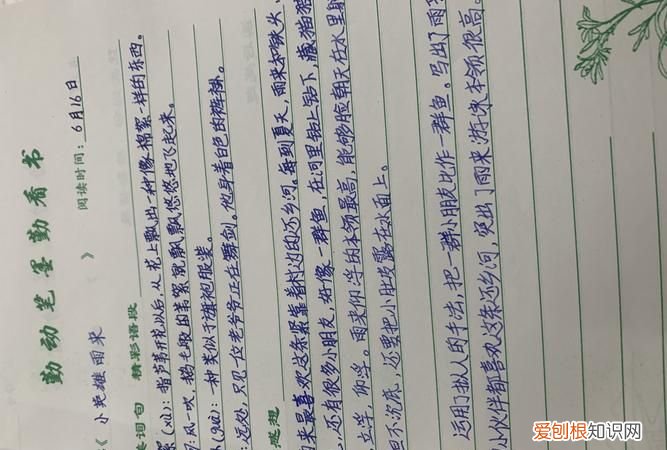 勤动笔墨勤看书
《小英雄雨来 》 阅读时间：6月16日
美词句 精彩语段
絮(xù)：指芦苇开花以后，从花上飘出一种像棉絮一样的东西。
：风一吹，鹅毛般的苇絮就飘飘悠悠地飞起来。
(guà)：一种类似于旗袍服装。
：远处，只见一位老爷爷正在舞剑。他身着白色的
感想
来最喜欢这条紧靠着村边的还乡河。每到夏天，雨来和铁头、
，还有很多小朋友，好像一群鱼，在河里钻上钻下，藏猫猫
，立浮，仰浮。雨来仰浮的本领最高，能够脸朝天在水里躺
但不沉底，还要把小肚皮露在水面上。
运用了拟人的手法，把一群小朋友比作一群鱼。写出了雨来
小伙伴都喜欢这条还乡河，突出了雨来游泳本领很高。
爱刨根知识网
www.baogenzhishi.com